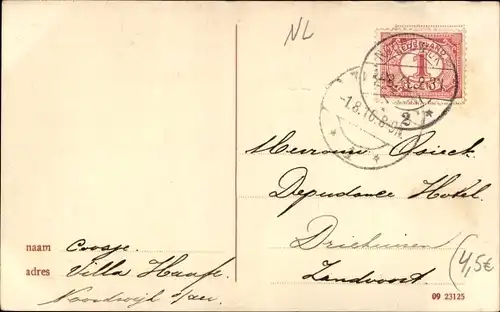 NL
1
-1.8.10.8-9N.
2
Mevrouw Osieck
Dependance Hotel
Driehuizen
Zandvoort
4,5€
naam Coosje
adres Villa
Noordwijk a/zee
09 23125